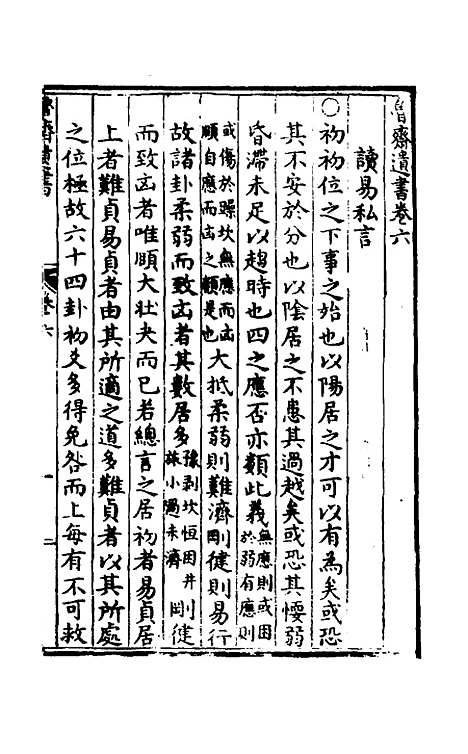 魯齋遺書卷六
讀易私言
○初初位之下事之始也以陽居之才可以有為矣或恐
其不安於分也以陰居之不患其過越矣或恐其懦弱
昏滯未足以趨時也四之應否亦類此義無應則或困於弱有應則
或傷於躁坎無應而凶順自應而凶之類是也大抵柔弱則難濟剛健則易行
故諸卦柔弱而致凶者其數居多豫剥坎恒困井旅小過未濟剛健
而致凶者唯頤大壯夬而已若總言之居初者易貞居
上者難貞易貞者由其所適之道多難貞者以其所處
之位極故六十四卦初爻多得免咎而上每有不可救
魯齋遺書
卷六
一